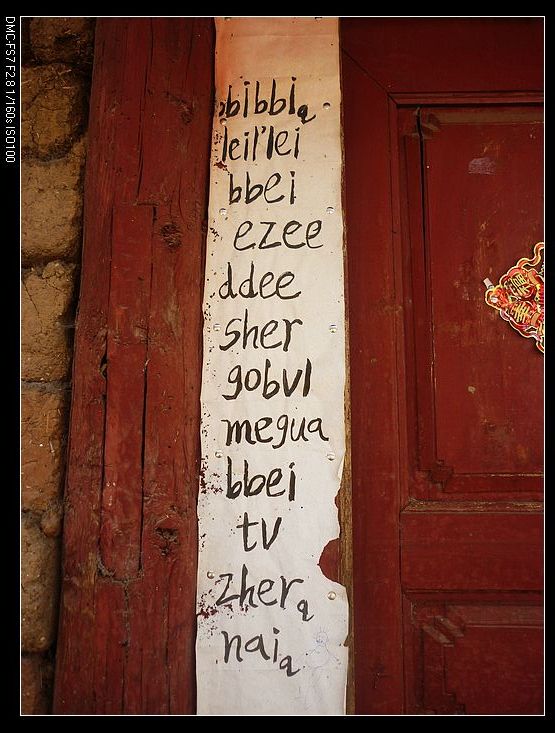 DMC-FS7 F2.8 1/160s ISO100
bbibbiq
leil'lei
bbei
ezee
ddee
sher
gobvl
megua
bbei
tv
zherq
naiq